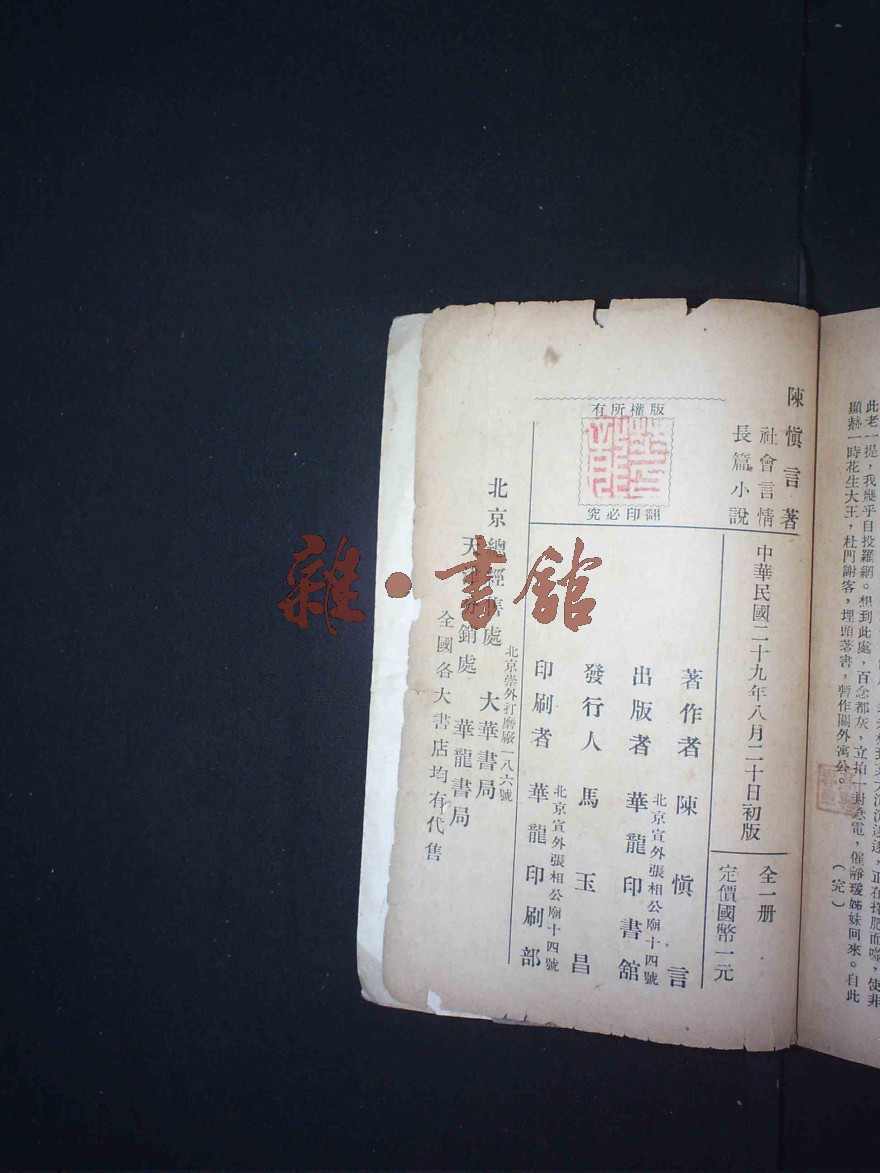 此老一提，我幾乎自投羅網。想到此處，百念都灰，立拍一封急電，催靜瑗姊妹回來。自此
顯赫一時花生大王，杜門謝客，埋頭著書，暫作關外寓公。
（完）
陳慎言著
社會言情
長篇小說
中華民國二十九年八月二十日初版
全一册
定價國幣一元
版權所有
翻印必究
著作者 陳慎言
北京宣外張相公廟十四號
出版者 華龍印書館
發行人 馬玉昌
北京宣外張相公廟十四號
印刷者 華龍印刷部
北京崇外打磨廠一八六號
北京總經售處 大華書局
天津分銷處 華龍書局
全國各大書店均有代售
雜·書館